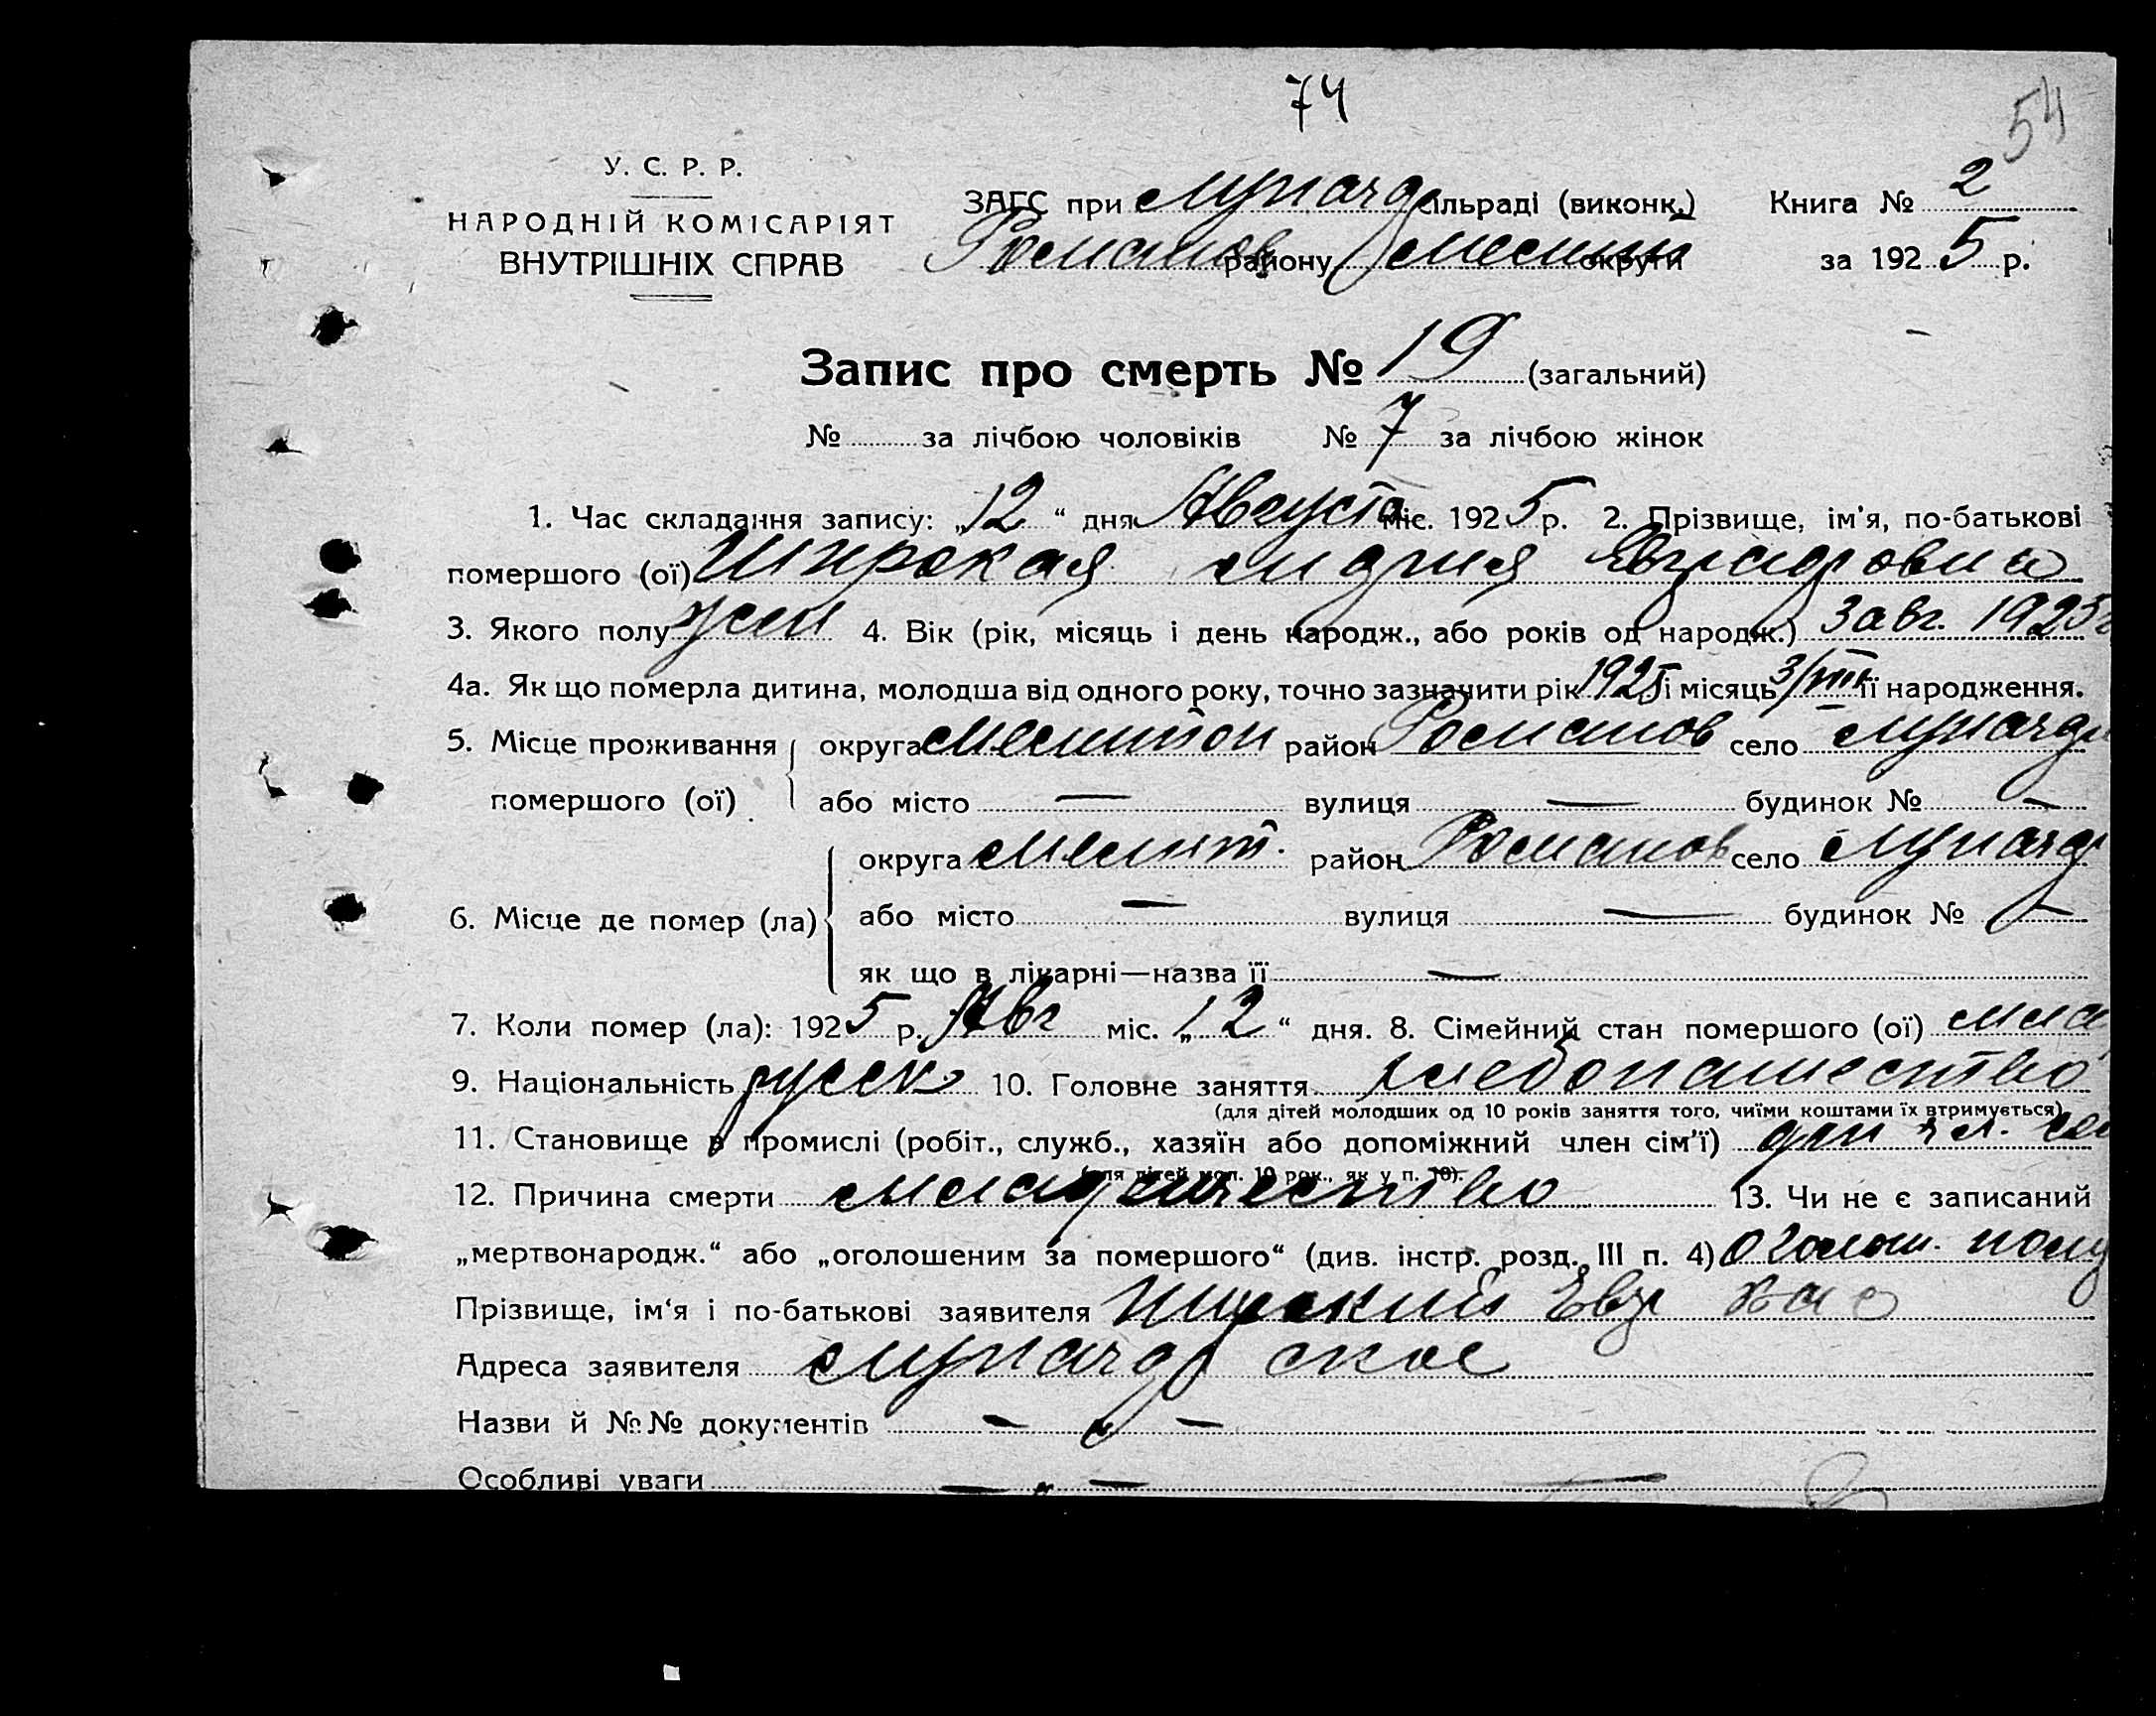 74
54
У. С. Р. Р.
НАРОДНІЙ КОМІСАРІЯТ
ВНУТРІШНІХ СПРАВ
ЗАГС при Лунач сільраді (виконк.) Книга № 2
Романов району округи за 1925 р.
Запис про смерть № 19 (загальний)
№ за лічбою чоловіків № 7 за лічбою жінок
1. Час складання запису: „12“ дня Августа міс. 1925 р. 2. Прізвище, ім'я, по-батькові
помершого (ої) Широкая Лидия Евграфовна
3. Якого полу жен 4. Вік (рік, місяць і день народж., або років од народж.) 3 авг. 1925 г
4а. Як що померла дитина, молодша від одного року, точно зазначити рік 1925 і місяць 3/VIII її народження.
5. Місце проживання округа район Романов село Лунача
помершого (ої) або місто — вулиця — будинок № —
округа район Романов село Лунача
6. Місце де помер (ла) або місто — вулиця — будинок № —
як що в лікарні—назва її —
7. Коли помер (ла): 1925 р. Авг міс. „12“ дня. 8. Сімейний стан помершого (ої) мла
9. Національність русск 10. Головне заняття хлебопашество
(для дітей молодших од 10 років заняття того, чиїми коштами їх втримується)
11. Становище в промислі (робіт., служб., хазяїн або допоміжний член сім'ї) чл. се
(для дітей мол. 10 рок., як у п. 10).
12. Причина смерти младенчество 13. Чи не є записаний
„мертвонародж.“ або „оголошеним за помершого“ (див. інстр. розд. III п. 4) оголош. пому
Прізвище, ім'я і по-батькові заявителя Широкий Евгр
Адреса заявителя Луначарское
Назви й №№ документів — „ —
Особливі уваги — „ — —